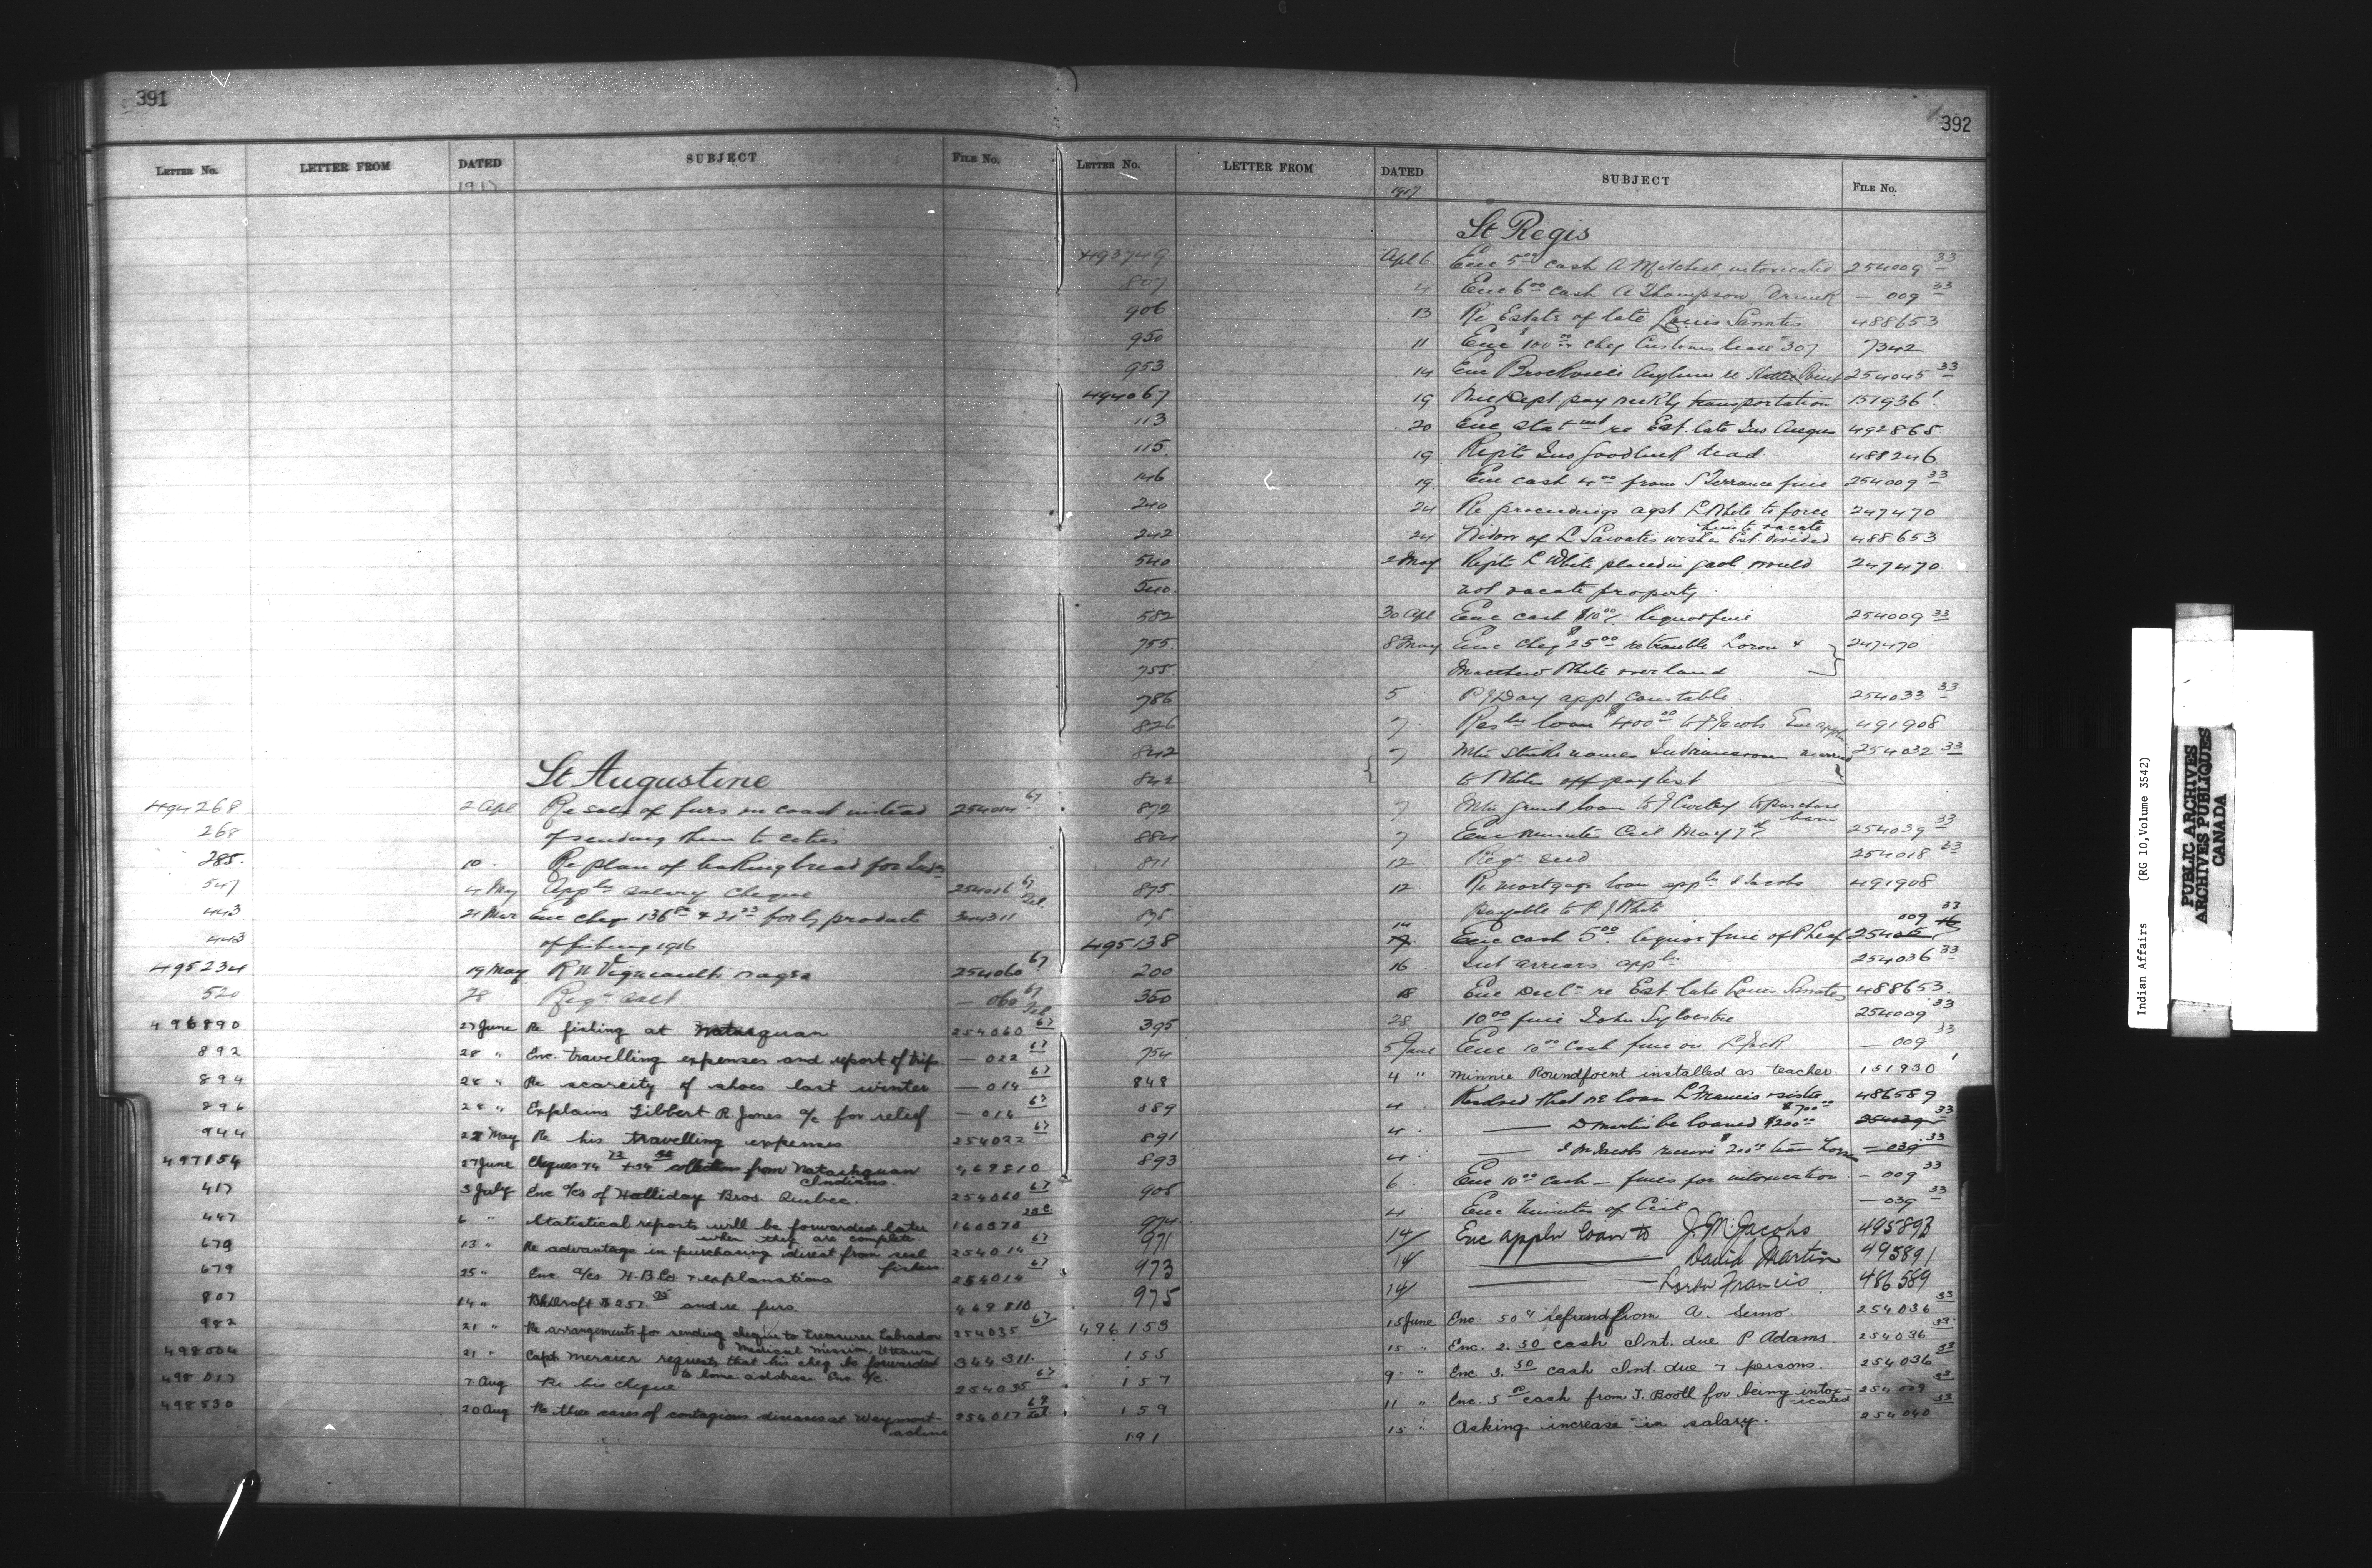 391
LETTER No. LETTER FROM DATED SUBJECT FILE No.
1917
St Augustine
494268 2 Apl Re sale of furs on coast instead 254014 67
268 of sending them to cities
285. 10. Re plan of baking bread for Inds
547 4 May Appln salary cheque 254016 67
443 21 Mar Enc cheq 136 & 21 for products 344311
443 of fishing 1916
495234 19 May R N Vigneault's wages 254060 67
520 28 Reqn salt — 060 67
496890 27 June Re fishing at Natasquan 254060 67
892 28 " Enc. travelling expenses and report of trip. — 022 67
894 28 " Re scarcity of shoes last winter — 014 67
896 28 " Explains Gilbert R. Jones a/c for relief — 014 67
944 22 May Re his travelling expenses 254022 67
497154 27 June Cheques 74 + 54 collections from Natashquan 469810
Indians.
417 3 July Enc a/cs of Halliday Bros. Quebec. 254060 67
447 6 " Statistical reports will be forwarded later 160570
when they are complete
679 13 " Re advantage in purchasing direct from seal 254014 67
fishers.
679 25 " Enc a/cs H.B.Co. & explanations 254014 67
807 14 " Bk Draft $257. and re furs. 469810
982 21 " Re arrangements for sending cheque to Treasurer Labrador 254035 67
Medical Mission, Ottawa
498004 21 " Capt. Mercier requests that his cheq be forwarded 344311.
to home address Enc. a/c.
498017 7 Aug. Re his cheque 254035 67
498530 20 Aug Re three cases of contagious diseases at 254017
392
LETTER No. LETTER FROM DATED SUBJECT FILE No.
1917
St Regis
493749 Apl 6 Enc 5.00 cash A Mitchell, intoxicated 254009 33
807 4 Enc 6.00 cash A Thompson, Drunk — 009 33
906 13 Re Estate of late Louis 488653
950 11 Enc $100.00 cheq Customs lease 307 7342
953 14 Enc Brockville Asylum re 254045 33
494067 19 Dept. pay weekly transportation 151936 1
113 20 Enc statmt re Est. late Jno Angus 492865
115. 19 Repts Jno Goodleaf dead 488246
146 19. Enc cash 4.00 from S Terrance fine 254009 33
240 24 Re proceedings agst L White to force 247470
him to vacate
242 24 Widow of L Sawatis wishes Est. divided 488653
540 2 May Repts L White placed in gaol, would 247470
540. not vacate property
582 30 Apl Enc cash $10.00 liquor fine 254009 33
755. 8 May Enc cheq $25.00 re trouble Loran & 247470
755. Matthew White over land
786 5 P J Day appt constable. 254033 33
826 7 loan $400.00 to J Jacobs Enc appln 491908
842 7 strike names Indian women married 254032 33
842 to Whites off pay list
872 7 grant loan to J to purchase
barn
884 7 Enc minutes Ccil May 7th 254039 33
871 12 Reqn seed 254018 33
895. 12 Re mortgage loan appln Jacobs 491908
895 payable to P J White
495138 14 Enc cash 5.00. liquor fine of P Leaf 254 009 33
200 16 Int arrears appln 254036 33
350 18 Enc Decln re Est. late Louis 488653.
395 28 10.00 fine John Sylvester 254009 33
754 5 June Enc 10.00 cash fine on L Jack — 009 33
848 4 " Minnie Roundpoint installed as teacher. 151930 1
889 4 Resolved that we loan L Francis 486589
$700.00
891 4 —— D Martin be loaned $200.00 254039 33
893 4 —— J M Jacobs receive $200 loan — 039 33
905 6 Enc 10.00 cash — fines for intoxication — 009 33
974. 4 Enc Minutes of Ccil — 039 33
971 14/ Enc appln loan to J. M. Jacobs 495893
973 14/ —— David Martin 495891
975 14/ —— Loran Francis. 486589
496153 15 June Enc 50¢ refund from A. 254036 33
155 15 " Enc. 2.50 cash Int. due P Adams 254036 33
157 9 " Enc 3.50 cash Int. due 7 persons. 254036 33
159 11 " Enc. 5.00 cash from J. Booth for being intox- 254009 33
icated
191 15 " Asking increase in salary. 254040 33
Indian Affairs (RG 10, Volume 3542)
PUBLIC ARCHIVES
ARCHIVES PUBLIQUES
CANADA